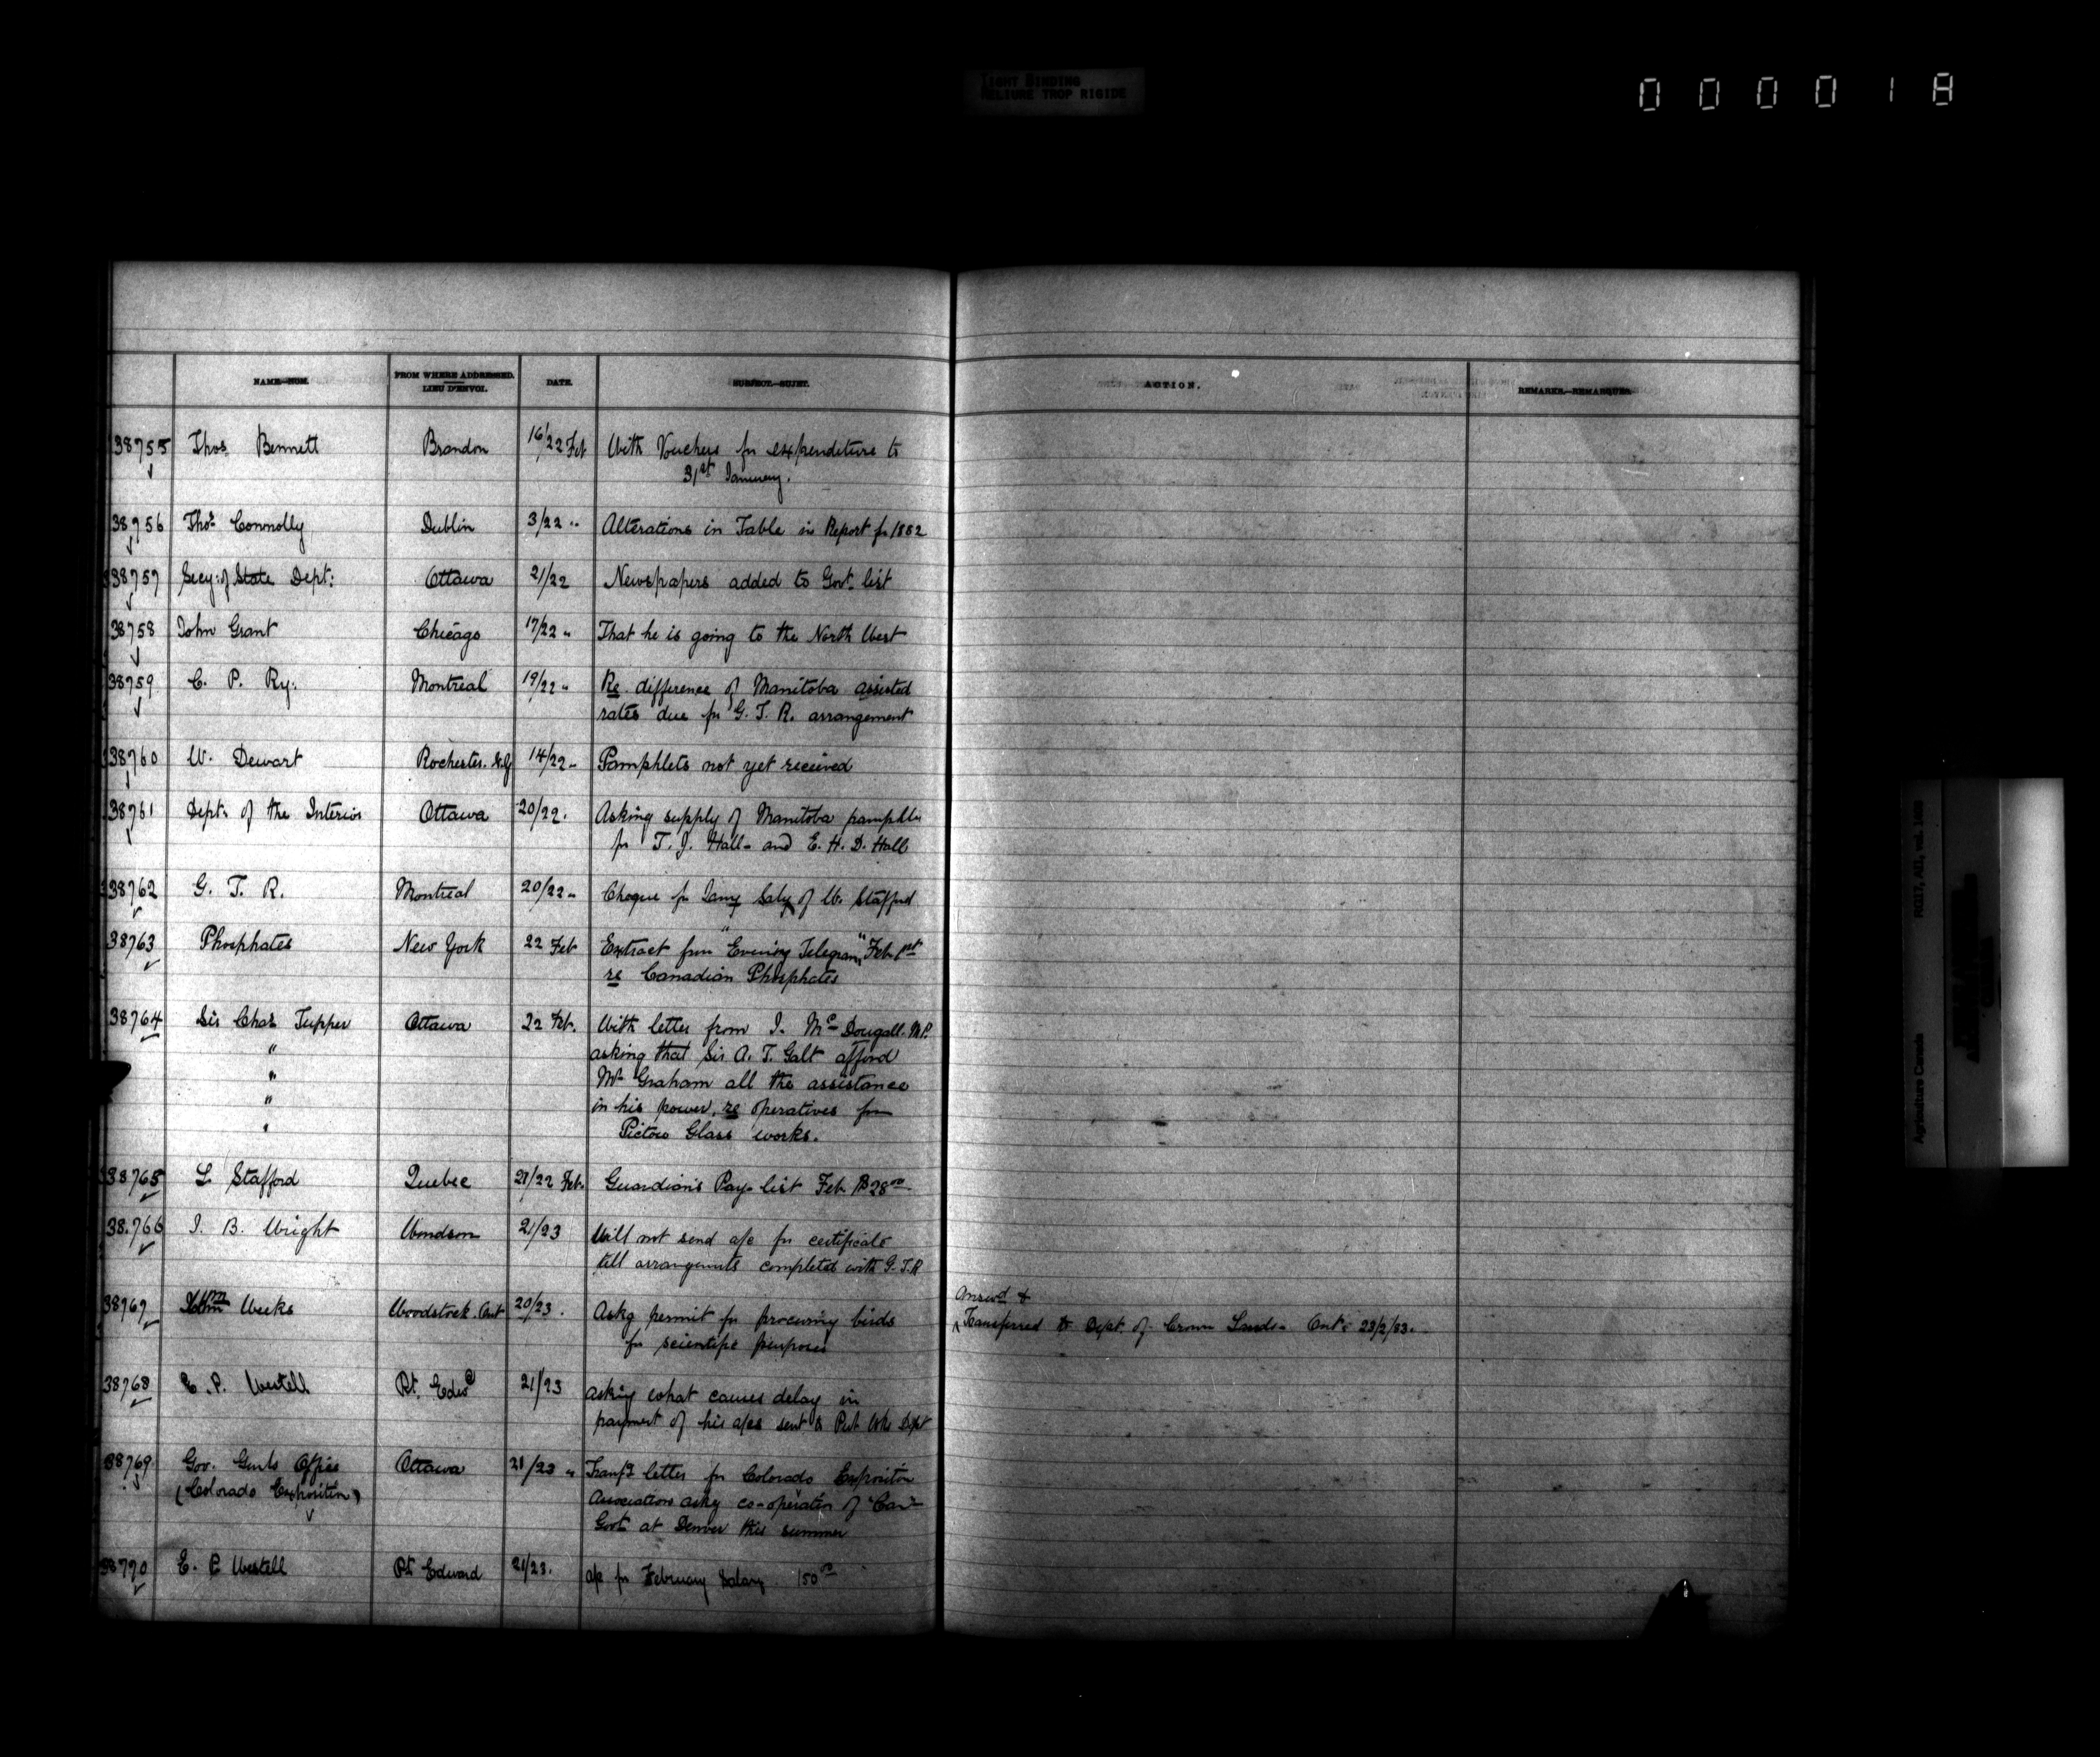 TIGHT BINDING
RELIURE TROP RIGIDE
000018
NAME.—NOM. FROM WHERE ADDRESSED. LIEU D'ENVOI. DATE. SUBJECT.—SUJET. ACTION. REMARKS.—REMARQUES
38755 Thos. Bennett Brandon 16/22 Feb With Vouchers for expenditure to
31st January.
38756 Thos Connolly Dublin 3/22 " Alterations in Table in Report for 1882
38757 Secy: of State Dept: Ottawa 21/22 Newspapers added to Govt. list
38758 John Grant Chicago 17/22 " That he is going to the North West
38759 C. P. Ry. Montreal 19/22 " Re difference of Manitoba assisted
rates due for G. T. R. arrangement
38760 W. Dewart Rochester. N.Y 14/22 " Pamphlets not yet received
38761 Dept. of the Interior Ottawa 20/22. Asking supply of Manitoba pamphlets
for T. J. Hall - and E. H. D. Hall
38762 G. T. R. Montreal 20/22 " Cheque for Jany Saly of W. Stafford
38763 Phosphates New York 22 Feb Extract from "Evening Telegram" Feb. 1st
re Canadian Phosphates
38764 Sir Chas Tupper Ottawa 22 Feb. With letter from J. McDougall. M.P.
" asking that Sir A. T. Galt afford
" Mr Graham all the assistance
" in his power, re operatives for
" Pictou Glass works.
38765 L. Stafford Quebec 21/22 Feb. Guardian's Pay-list Feb. $28.00
38.766 J. B. Wright 21/23 Will not send a/c for certificate
till arrangements completed with G.T.R
38767 Wm Weeks Woodstock. Ont 20/23. Askg permit for procuring birds
for scientific purposes
Answd &
Transferred to Dept. of Crown Lands - Ont: 23/2/83.
38768 E. P. Westell Pt. Edwd 21/23 asking what causes delay in
payment of his a/cs sent to Pub. Wks Dept
38769 Gov. Genls Office Ottawa 21/23 " Transfg letter for Colorado Exposition
(Colorado Exposition) Association askg co-operation of Can
Govt at Denver this summer
38770 E. P. Westell Pt. Edward 21/23. a/c for February Salary. 150.00
Agriculture Canada RG17, AII, vol.